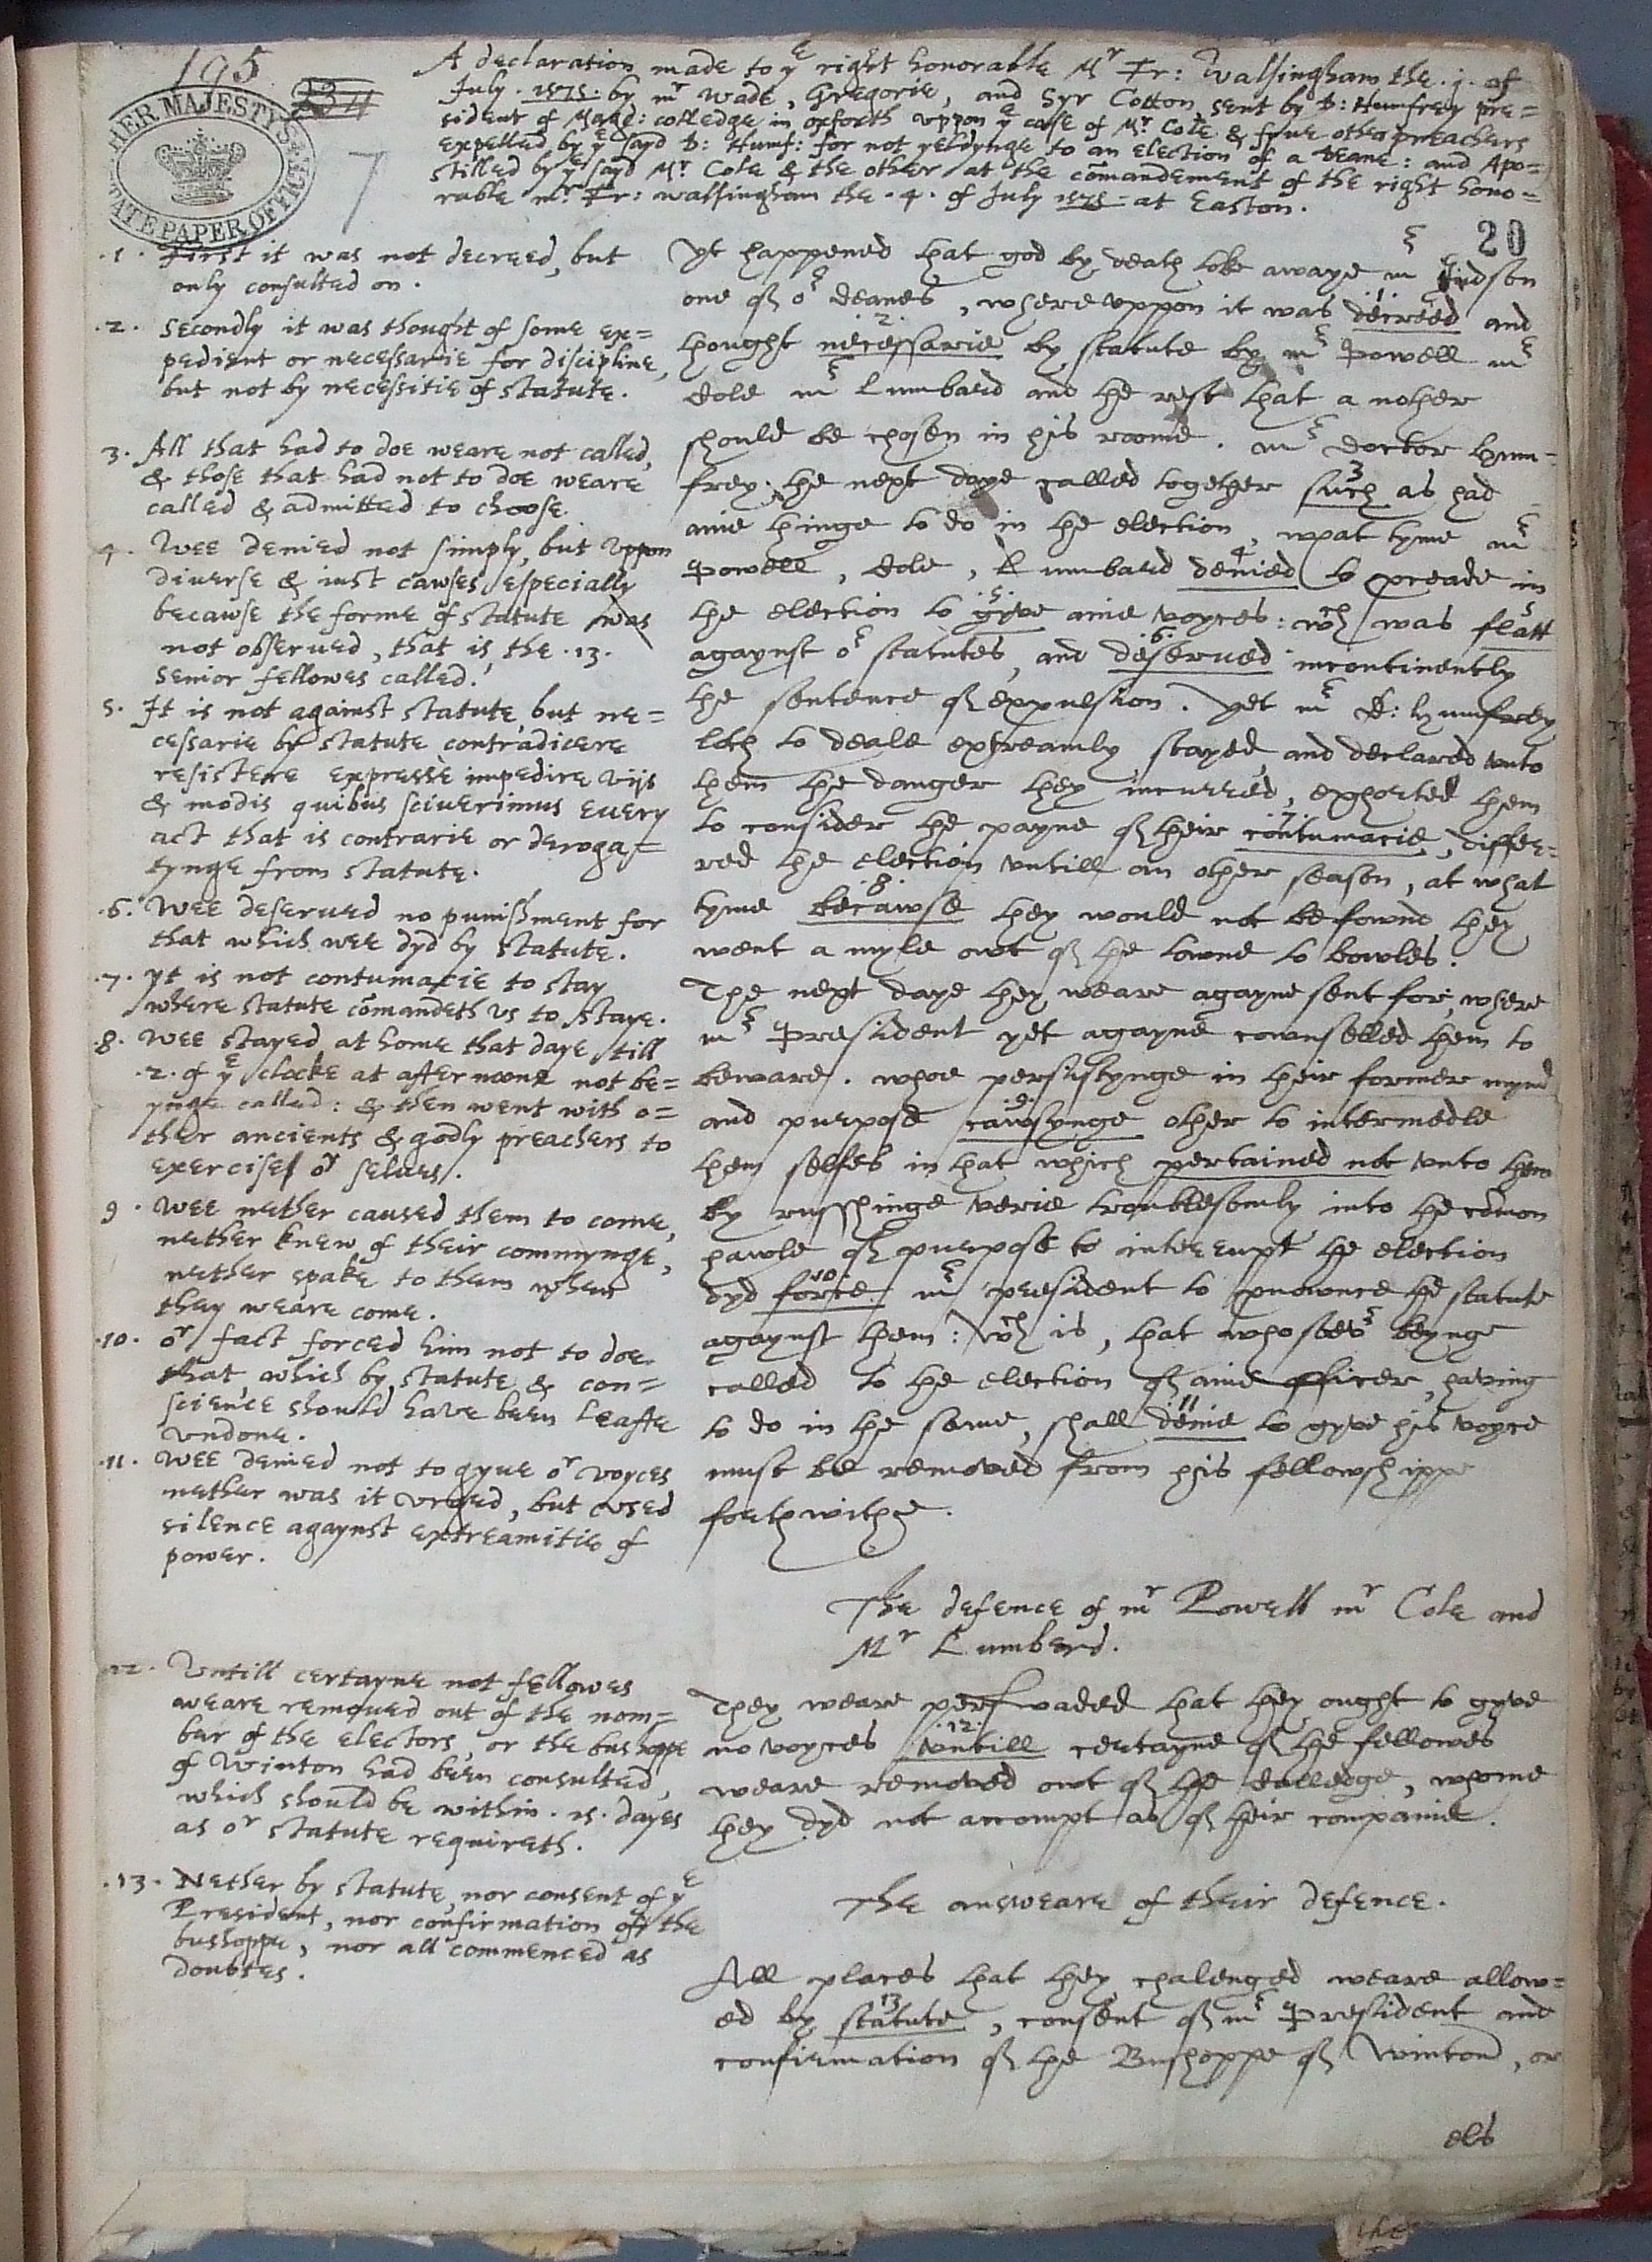 195
234
7
HER MAJESTY'S
STATE PAPER OFFICE
A declaration made to yᵉ right honorable Mʳ Fr: Walsingham the .j. of
July . 1575. by mʳ Wade, Gregorie, and Syr Cotton sent by D: Humfrey pre=
sident of Magd: colledge in oxforth vppon yᵉ case of Mʳ Cole & fyue other preachers
expelled by yᵉ sayd D: Humf: for not yeldynge to an election of a Deane: and Apo=
stilled by yᵉ sayd Mʳ Cole & the other at the cōmandement of the right hono=
rable mʳ Fr: walsingham the .4. of July 1575 at Easton.
20
.1. First it was not decreed, but
only consulted on.
.2. Secondly it was thought of some ex=
pedient or necessarie for discipline,
but not by necessitie of statute.
3. All that had to doe weare not called,
& those that had not to doe weare
called & admitted to choose.
4. Wee denied not simply, but vppon
diuerse & iust cawses, especially
becawse the forme of statute was
not obserued, that is, the .13.
senior fellowes called.
5. It is not against statute, but ne=
cessarie by statute contradicere
resistere expressè impedire vijs
& modis quibus sciuerimus euery
act that is contrarie or deroga=
tynge from statute.
.6. Wee deserued no punishment for
that which wee dyd by statute.
.7. Yt is not contumacie to stay
where statute cōmandeth vs to staye.
.8. Wee stayed at home that daye till
.2. of yᵉ clocke at after noone not be=
ynge called: & then went with o=
ther ancients & godly preachers to
exercise oʳ selues.
9. Wee nether caused them to come,
nether knew of their commynge,
nether spake to them when
they weare come.
.10. oʳ fact forced him not to doe
that, which by statute & con=
science should have been leafte
vndone.
.11. Wee denied not to gyue oʳ voyces
nether was it vrged, but vsed
silence agaynst extreamitie of
power.
12. Vntill certayne not fellowes
weare remoued out of the nom=
ber of the electors, or the bushoppe
of Winton had been consulted,
which should be within .15. dayes
as oʳ statute requireth.
.13. Nether by statute, nor consent of yᵉ
President, nor confirmation of the
bushoppe, nor all commenced as
doubtes.
Yt happened that god by death toke awaye mʳ Judson
one of oʳ deanes, where vppon it was .1. decreed and
thought .2. necessarie by statute by mʳ Powell mʳ
Cole mʳ Lumbard and the rest that a nother
should be chosen in his roome. mʳ Doctor Hum=
frey the next daye called together 3 such as had
anie thinge to do in the election, what tyme mʳ
Powell, Cole, Lumbard 4 denied to preade in
the election to .5. gyve anie voyces: wᶜʰ was flatt
agaynst oʳ statutes, and .6. deserued incontinently
the sentence of expulsion. Yet mʳ D: Humfrey
loth to deale extreamly, stayed, and declared vnto
them the danger they incurred, exhorted them
to consider the payne of their .7. contumacie, differ=
red the election vntill an other season, at what
tyme .8. becawse they would not be fownd they
went a myle owt of the towne to bowles.
The next daye they weare agayne sent for, where
mʳ President yet agayne cownselled them to
beware. whoe persistynge in their former mynd
and purpose .9. cawsynge other to intermedle
them selfes in that which pertained not vnto them
by russhinge verie troublesomly into the cōmon
hawle of purpose to interrupt the election
dyd 10 force mʳ president to pnownce the statute
agaynst them: wᶜʰ is, that whosoevʳ beynge
called to the election of anie officer, having
to do in the same, shall 11 denie to gyve his voyce
must be removed from his fellowshippe
forthwithe.
The defence of mʳ Powell mʳ Cole and
Mʳ Lumberd.
They weare perswaded that they ought to gyve
no voyces .12. vntill certayne of the fellowes
weare removed owt of the Colledge, whome
they dyd not accompt as of their companie.
The answeare of their defence.
All places that they chalenged weare allow=
ed by 13 statute, consent of mʳ President and
confirmation of the Bushoppe of Winton, or
els
the